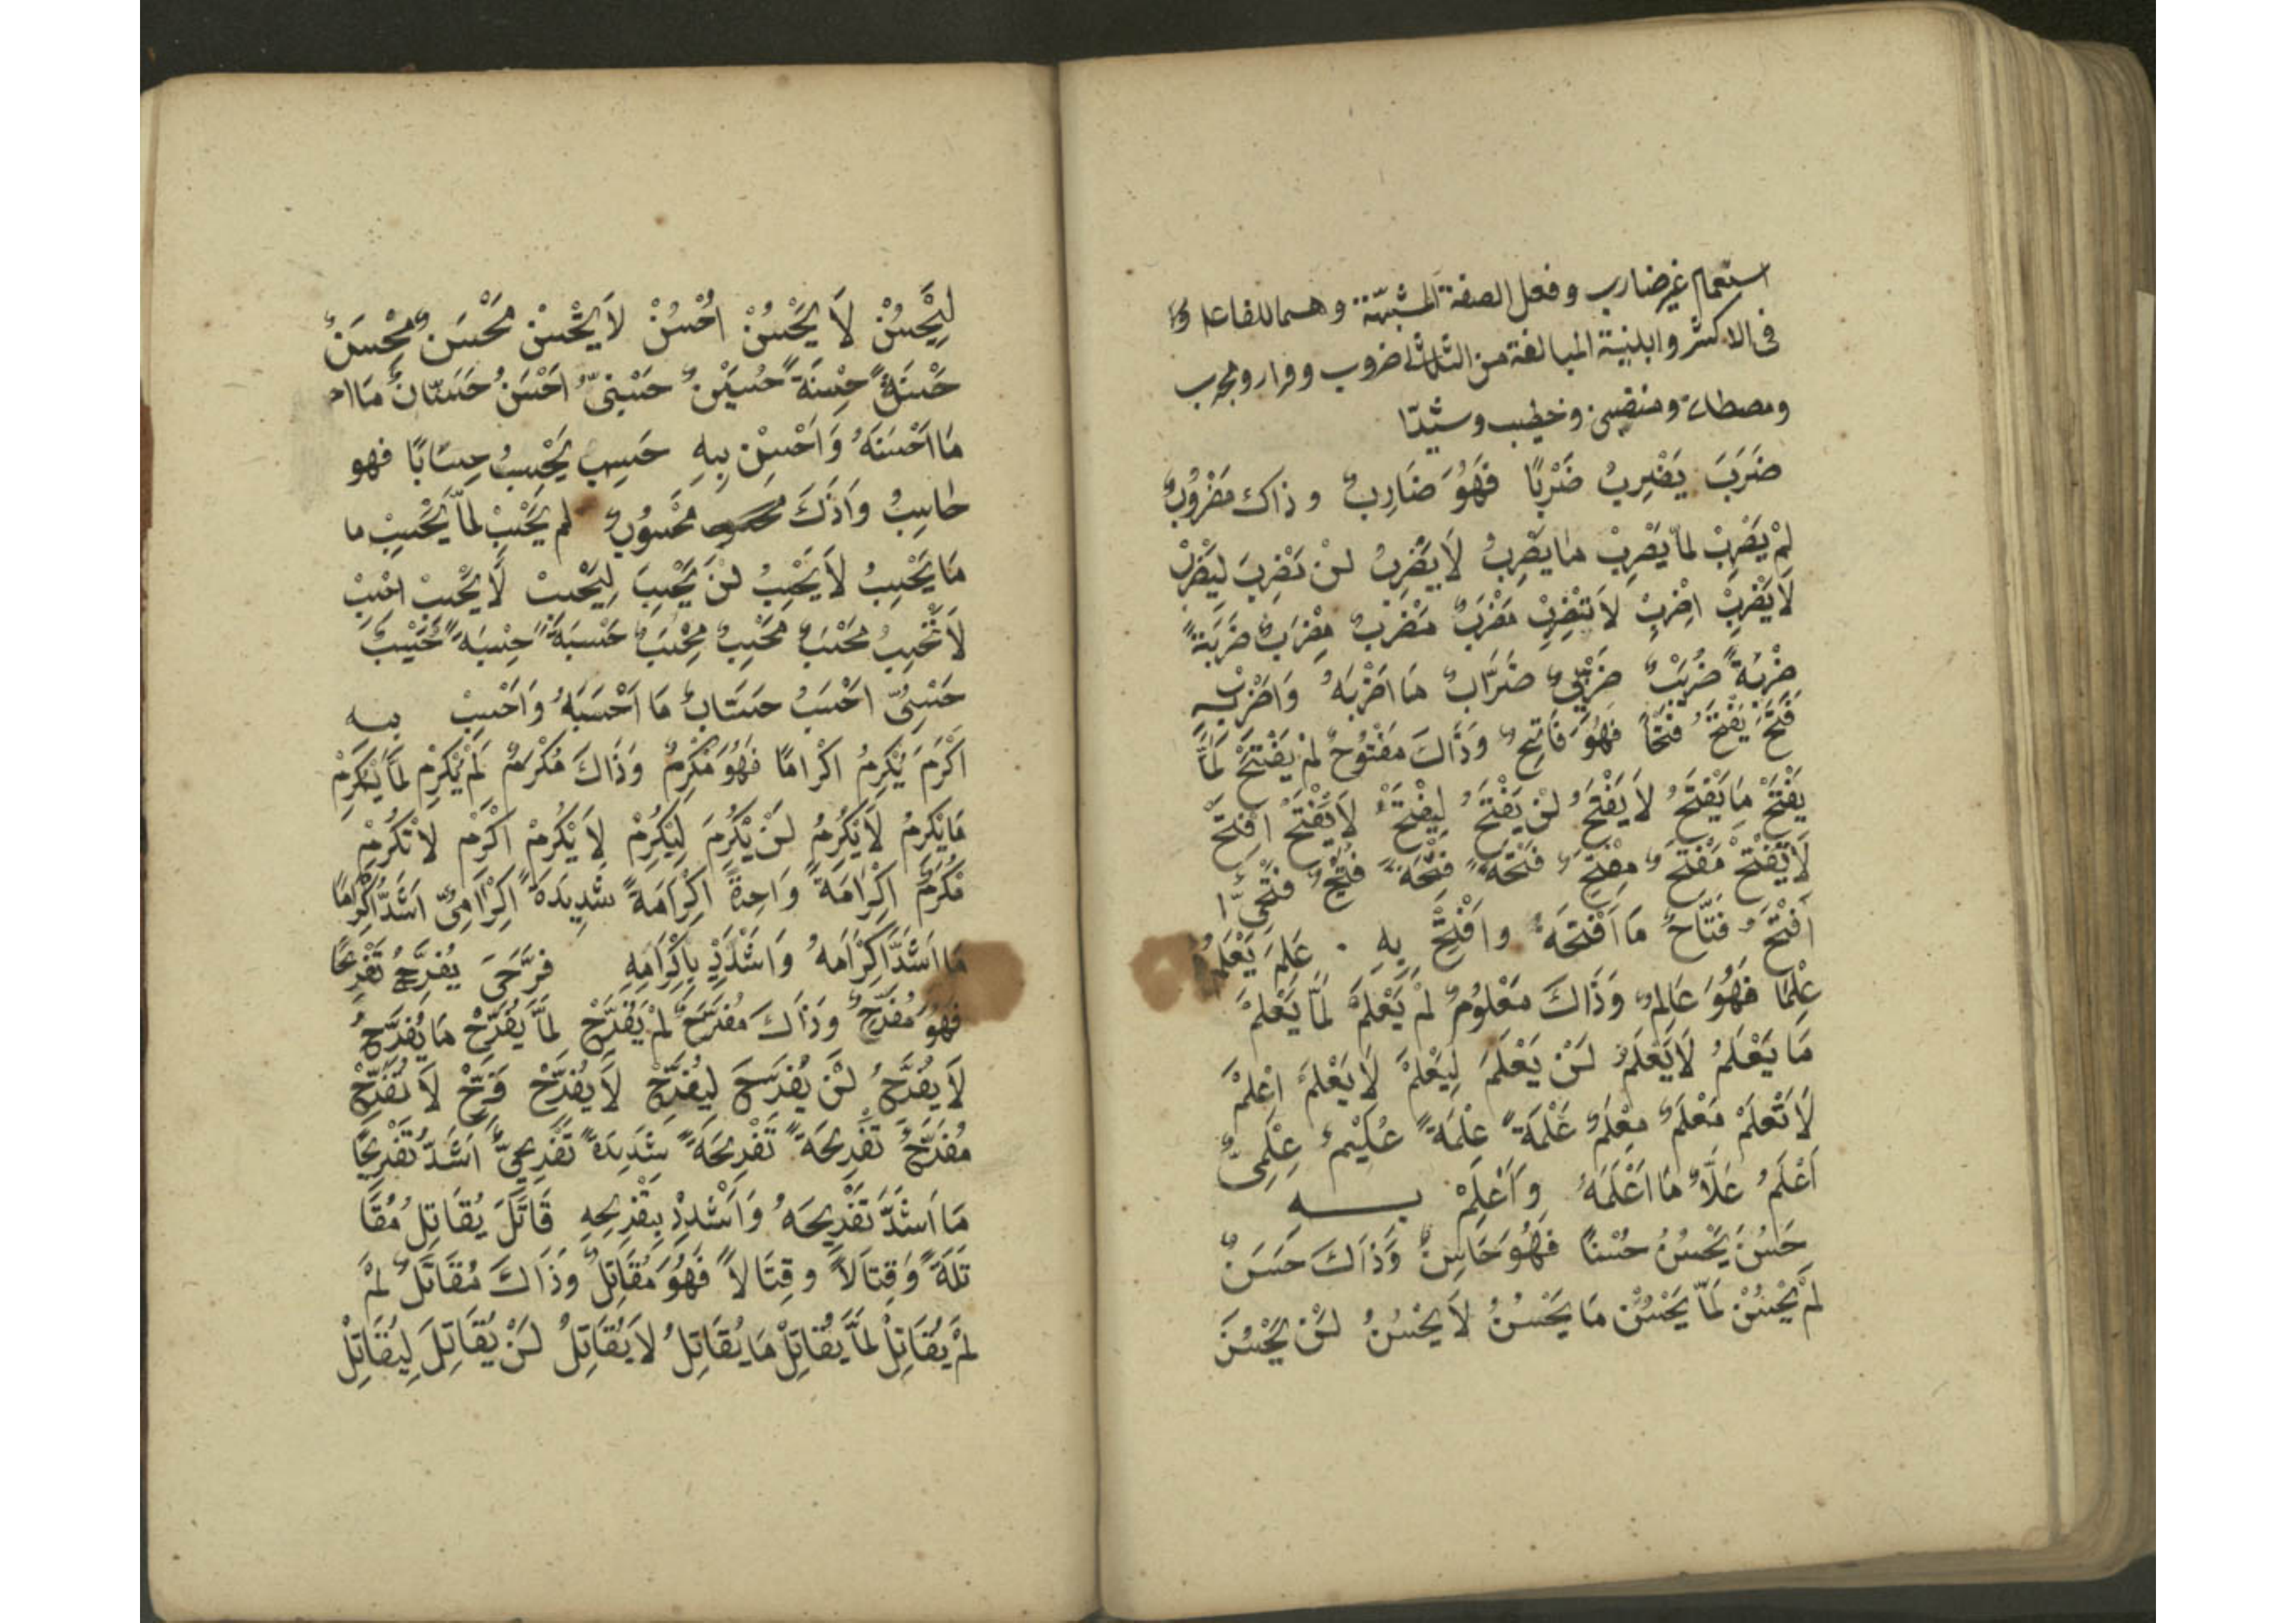 استعمام غير ضارب وفعل الصفة المشبهة وهما للفاعل
فى الاكثر وابنية المبالغة من الثلاثى ضروب وفرار ومجرب
ومصطاد ومنضى وخطيب وشيدا
ضَرَبَ يَضْرِبُ ضَرْبًا فَهُوَ ضَارِبٌ وذاك مَضْرُوبٌ
لَمْ يَضْرِبْ لَمَّا يَضْرِبْ مَا يَضْرِبُ لَا يَضْرِبُ لَنْ يَضْرِبَ لِيَضْرِبْ
لَا يَضْرِبْ اِضْرِبْ لَا تَضْرِبْ مَضْرَبٌ مَضْرِبٌ مِضْرَبٌ ضَرْبَةً
ضِرْبَةً ضُرَيْبٌ ضَرْبِىٌّ ضَرَّابٌ مَا اَضْرَبَهُ وَاَضْرِبْ بِهِ
فَتَحَ يَفْتَحُ فَتْحًا فَهُوَ فَاتِحٌ وَذَاكَ مَفْتُوحٌ لَمْ يَفْتَحْ لَمَّا
يَفْتَحْ مَا يَفْتَحُ لَا يَفْتَحُ لَنْ يَفْتَحَ لِيَفْتَحْ لَا يَفْتَحْ اِفْتَحْ
لَا تَفْتَحْ مَفْتَحٌ مِفْتَحٌ فَتْحَةً فِتْحَةً فُتَيْحٌ فَتْحِىٌّ
اَفْتَحُ فَتَّاحٌ مَا اَفْتَحَهُ وَاَفْتِحْ بِهِ . عَلِمَ يَعْلَمُ
عِلْمًا فَهُوَ عَالِمٌ وَذَاكَ مَعْلُومٌ لَمْ يَعْلَمْ لَمَّا يَعْلَمْ
مَا يَعْلَمُ لَا يَعْلَمُ لَنْ يَعْلَمَ لِيَعْلَمْ لَا يَعْلَمْ اِعْلَمْ
لَا تَعْلَمْ مَعْلَمٌ مِعْلَمٌ عَلْمَةً عِلْمَةً عُلَيْمٌ عِلْمِىٌّ
اَعْلَمُ عَلَّامٌ مَا اَعْلَمَهُ وَاَعْلِمْ بِهِ
حَسُنَ يَحْسُنُ حُسْنًا فَهُوَ حَاسِنٌ وَذَاكَ حَسَنٌ
لَمْ يَحْسُنْ لَمَّا يَحْسُنْ مَا يَحْسُنُ لَا يَحْسُنُ لَنْ يَحْسُنَ
لِيَحْسُنْ لَا يَحْسُنْ اُحْسُنْ لَا تَحْسُنْ مَحْسَنٌ مِحْسَنٌ
حَسْنَةً حِسْنَةً حُسَيْنٌ حَسْنِىٌّ اَحْسَنُ حَسَّانٌ مَا اح
مَا اَحْسَنَهُ وَاَحْسِنْ بِهِ حَسِبَ يَحْسِبُ حِسَابًا فهو
حَاسِبٌ وَذَاكَ مَحْسُوبٌ لم يَحْسِبْ لَمَّا يَحْسِبْ ما
مَا يَحْسِبُ لَا يَحْسِبُ لَنْ يَحْسِبَ لِيَحْسِبْ لَا يَحْسِبْ اِحْسِبْ
لَا تَحْسِبْ مَحْسَبٌ مَحْسِبٌ مِحْسَبٌ حَسْبَةً حِسْبَةً حُسَيْبٌ
حَسْبِىٌّ اَحْسَبُ حَسَّابٌ مَا اَحْسَبَهُ وَاَحْسِبْ بِهِ
اَكْرَمَ يُكْرِمُ اِكْرَامًا فَهُوَ مُكْرِمٌ وَذَاكَ مُكْرَمٌ لَمْ يُكْرِمْ لَمَّا يُكْرِمْ
مَا يُكْرِمُ لَا يُكْرِمُ لَنْ يُكْرِمَ لِيُكْرِمْ لَا يُكْرِمْ اَكْرِمْ لَا تُكْرِمْ
مُكْرَمٌ اِكْرَامَةً وَاحِدَةً اِكْرَامَةً شَدِيدَةً اِكْرَامِىٌّ اَشَدُّ اِكْرَامًا
مَا اَشَدَّ اِكْرَامَهُ وَاَشْدِدْ بِاِكْرَامِهِ فَرَّحَ يُفَرِّحُ تَفْرِيحًا
فَهُوَ مُفَرِّحٌ وَذَاكَ مُفَرَّحٌ لَمْ يُفَرِّحْ لَمَّا يُفَرِّحْ مَا يُفَرِّحُ
لَا يُفَرِّحُ لَنْ يُفَرِّحَ لِيُفَرِّحْ لَا يُفَرِّحْ فَرِّحْ لَا تُفَرِّحْ
مُفَرَّحٌ تَفْرِيحَةً تَفْرِيحَةً شَدِيدَةً تَفْرِيحِىٌّ اَشَدُّ تَفْرِيحًا
مَا اَشَدَّ تَفْرِيحَهُ وَاَشْدِدْ بِتَفْرِيحِهِ قَاتَلَ يُقَاتِلُ مُقَا
تَلَةً وَقِتَالًا وقِيتَالًا فَهُوَ مُقَاتِلٌ وَذَاكَ مُقَاتَلٌ لَمْ
لَمْ يُقَاتِلْ لَمَّا يُقَاتِلْ مَا يُقَاتِلُ لَا يُقَاتِلُ لَنْ يُقَاتِلَ لِيُقَاتِلْ